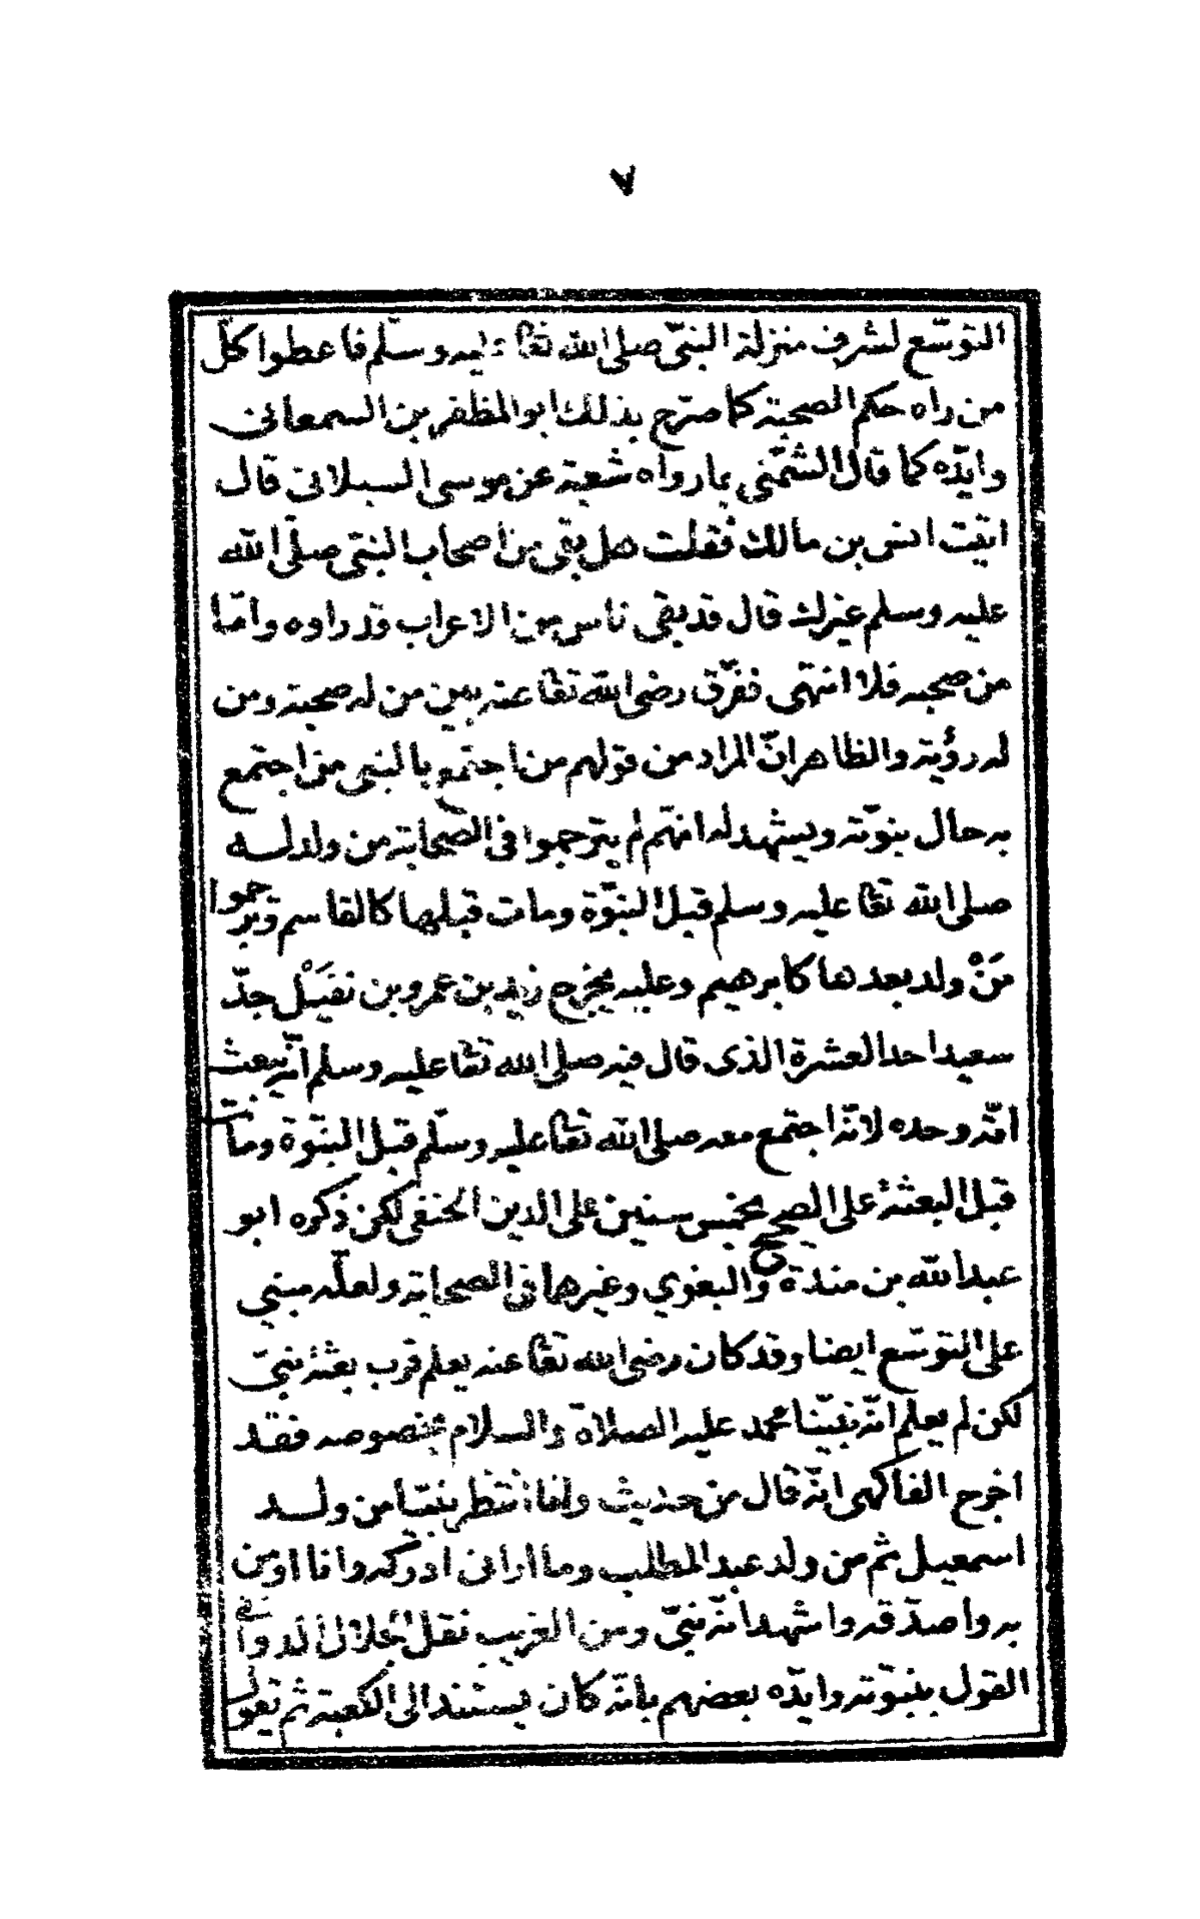 ٧
التوسّع لشرف منزلة النبىّ صلى الله تعا عليه وسلّم فاعطوا كلّ
من راه حكم الصحبة كما صرّح بذلك ابو المظفر بن السمعانى
وايدّه كما قال الشمّنى بما رواه شعبة عن موسى السبلانى قال
اتيت انس بن مالك فقلت هل بقى من اصحاب النبّى صلّى الله
عليه وسلم غيرك قال قد بقى ناس من الاعراب قد راوه وامّا
من صحبه فلا انتهى ففرّق رضى الله تعا عنه بين من له صحبة ومن
له رؤية والظاهر انّ المراد من قولهم من اجتمع بالنبى من اجتمع
به حال نبوّته ويشهد له انهّم لم يترجموا فى الصّحابة من ولد لـه
صلى الله تعا عليه وسلم قبل النبوّة ومات قبلها كالقاسم وترجموا
مَنْ ولد بعدها كابرهيم وعليه يخرج زيد بن عمرو بن نفَيْل جدّ
سعيد احد العشرة الذى قال فيه صلى الله تعا عليه وسلم انّه يبعث
امّة وحده لانّه اجتمع معه صلى الله تعا عليه وسلّم قبل النبّوة ومات
قبل البعثة على الصحيح بخمس سنين على الدين الحنفى لكن ذكره ابو
عبد الله بن مندة والبغوي وغيرهما فى الصحابة ولعلّه مبنى
على التوسّع ايضا وقد كان رضى الله تعا عنه يعلم قرب بعثة نبىّ
لكن لم يعلم انّه نبيّنا محمد عليه الصلاة والسلام بخصوصه فقـد
اخرج الفاكهى انّه قال من حديث وانا انتظر نبيّا من ولـد
اسمعيل ثم من ولد عبد المطلب وما ارانى ادركه وانا اومن
به واصدّقه واشهد انّه نبىّ ومن الغريب نقل الجلال الدوانى
القول بنبوّته وايدّه بعضهم بانّه كان يستند الى الكعبة ثم يقول